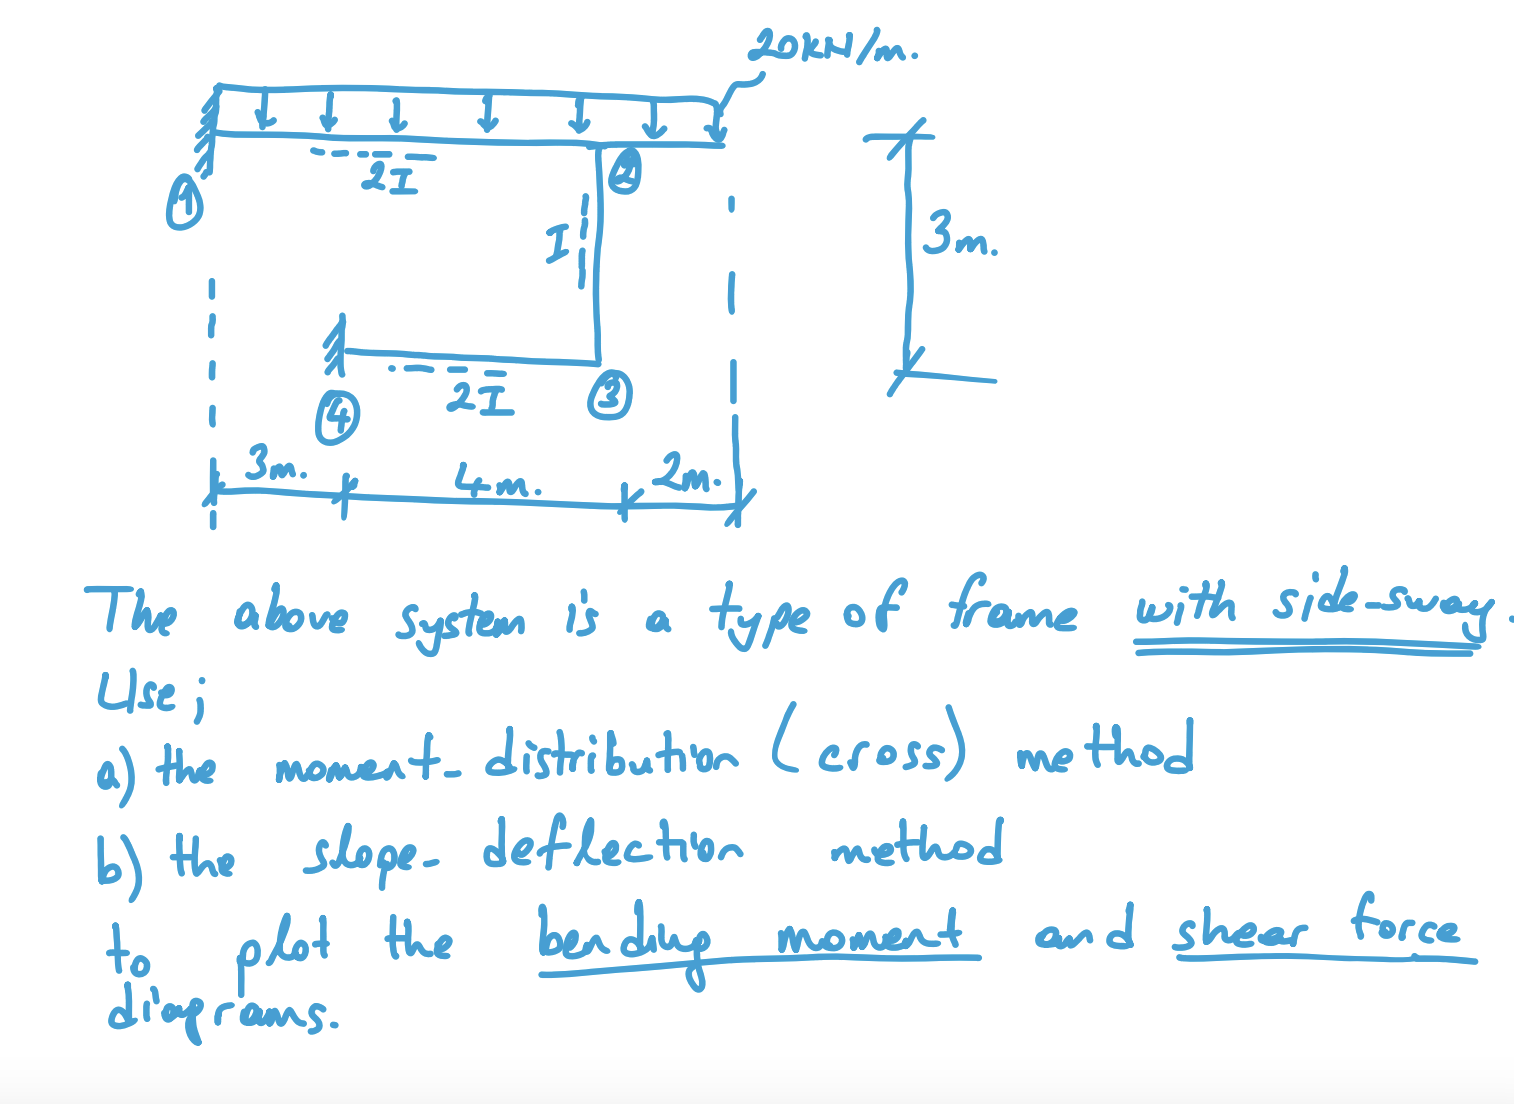 20kN/m.
2I
2
1
I
3m.
2I
3
4
3m.
4m.
2m.
The above system is a type of frame with side-sway.
Use;
a) the moment-distribution (cross) method
b) the slope-deflection method
to plot the bending moment and shear force
diagrams.